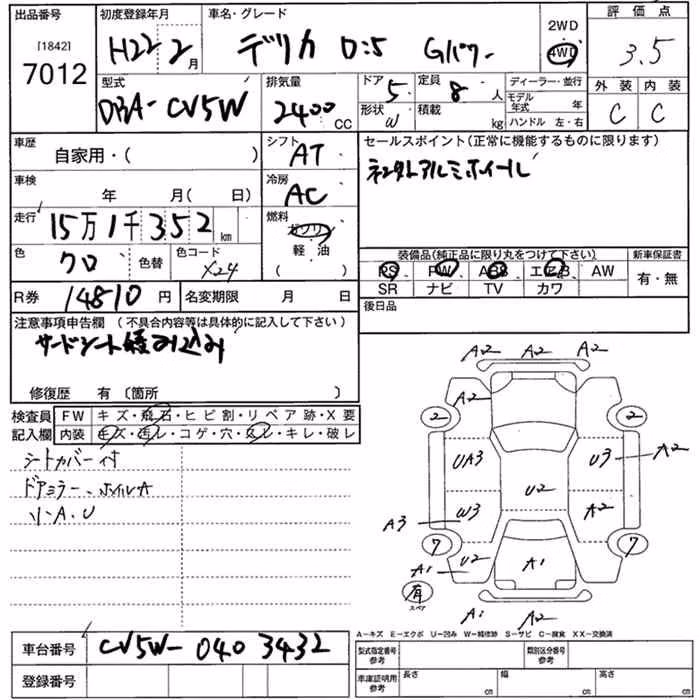 出品番号 初度登録年月 車名・グレード 2WD 評価点
[1842] 7012 H22 2月 デリカ D:5 Gパワー 4WD 3.5
型式 排気量 ドア 定員 ディーラー・並行 外装 内装
DBA-CV5W 2400 CC 5 8人 モデル年式 年 C C
形状 W 積載 kg ハンドル 左・右
車歴 シフト セールスポイント(正常に機能するものに限ります)
自家用・( ) AT アルミホイール
車検 年 月( 日) 冷房 AC
走行 15万1千352km 燃料 ガソリン
軽・油
( )
色 クロ 色替 色コード X24
装備品(純正品に限り丸をつけて下さい) 新車保証書
PS PW ABS エアB AW 有・無
SR ナビ TV カワ
R券 14810円 名変期限 月 日 後日品
注意事項申告欄 (不具合内容等は具体的に記入して下さい)
サードシート
修復歴 有 〔箇所 〕
検査員 FW キズ・飛石・ヒビ割・リペア跡・X要
記入欄 内装 キズ・汚レ・コゲ・穴・スレ・キレ・破レ
シートカバー付
ドアミラー、ホイルA
小A、U
A2 A2 A2
A2
2 2
UA3 U3 A2
U2
W3 A2
A3
7 7
A1 U2 A1
有
スペア
A1 A2
A-キズ E-エクボ U-凹み W-補修跡 S-サビ C-腐食 XX-交換済
車台番号 CV5W-040 3432 型式指定番号 参考 類別区分番号 参考
登録番号 車庫証明用 参考 長さ cm 幅 cm 高さ cm